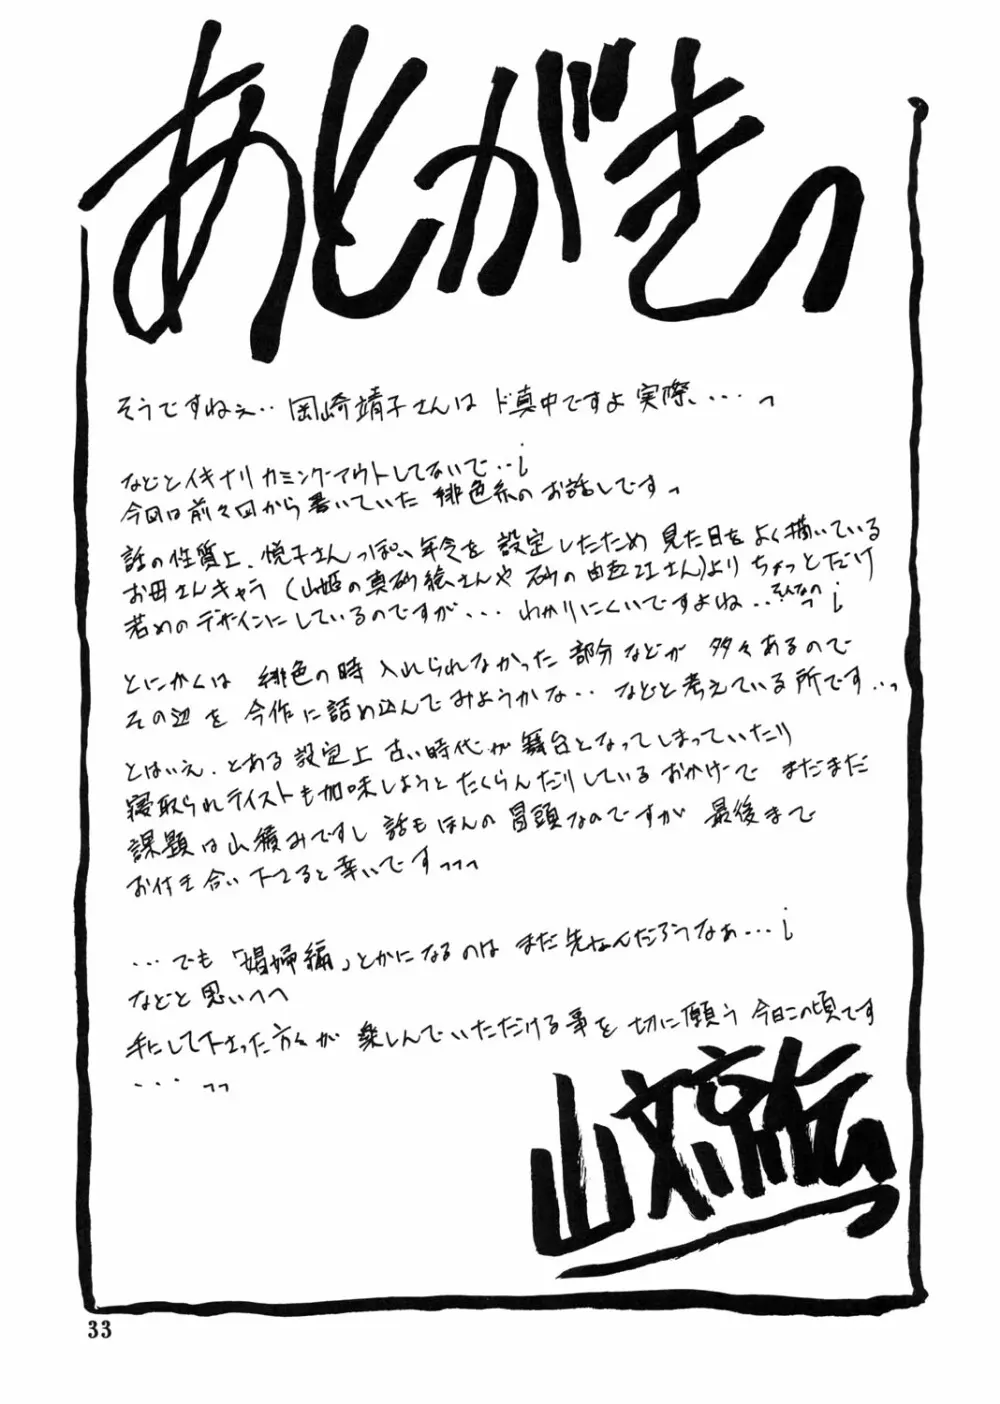 あとがきっ
そうですねぇ‥岡崎靖子さんは ド真中ですよ 実際、・・・っ
などとイキナリ カミングアウトしてないで‥¡
今回は前々回から書いていた 緋色系のお話しですっ
話の性質上、悦子さんっぽい年令を 設定したため 見た目を よく描いている
お母さんキャラ (山姫の真砂絵さんや 砂の由岐江さん)より ちょっとだけ
若めのデザインにしているのですが、・・・わかりにくいですよね‥そんなの¡
とにかくは 緋色の時 入れられなかった 部分などが 多々あるので
その辺を 今作に詰め込んでみようかな‥ などと考えている所です‥っ
とはいえ、とある設定上 古い時代が舞台となってしまっていたり
寝取られテイストも加味しようと たくらんだりしているおかげで まだまだ
課題は山積みですし 話もほんの 冒頭なのですが 最後まで
お付き合い下さると幸いですっっっ
・・・でも「娼婦編」とかになるのは まだ先なんだろうなぁ・・・¡
などと思いつつ
手にして下さった方々が 楽しんでいただける事を 切に願う 今日この頃です
・・・っっ
山文京伝
33